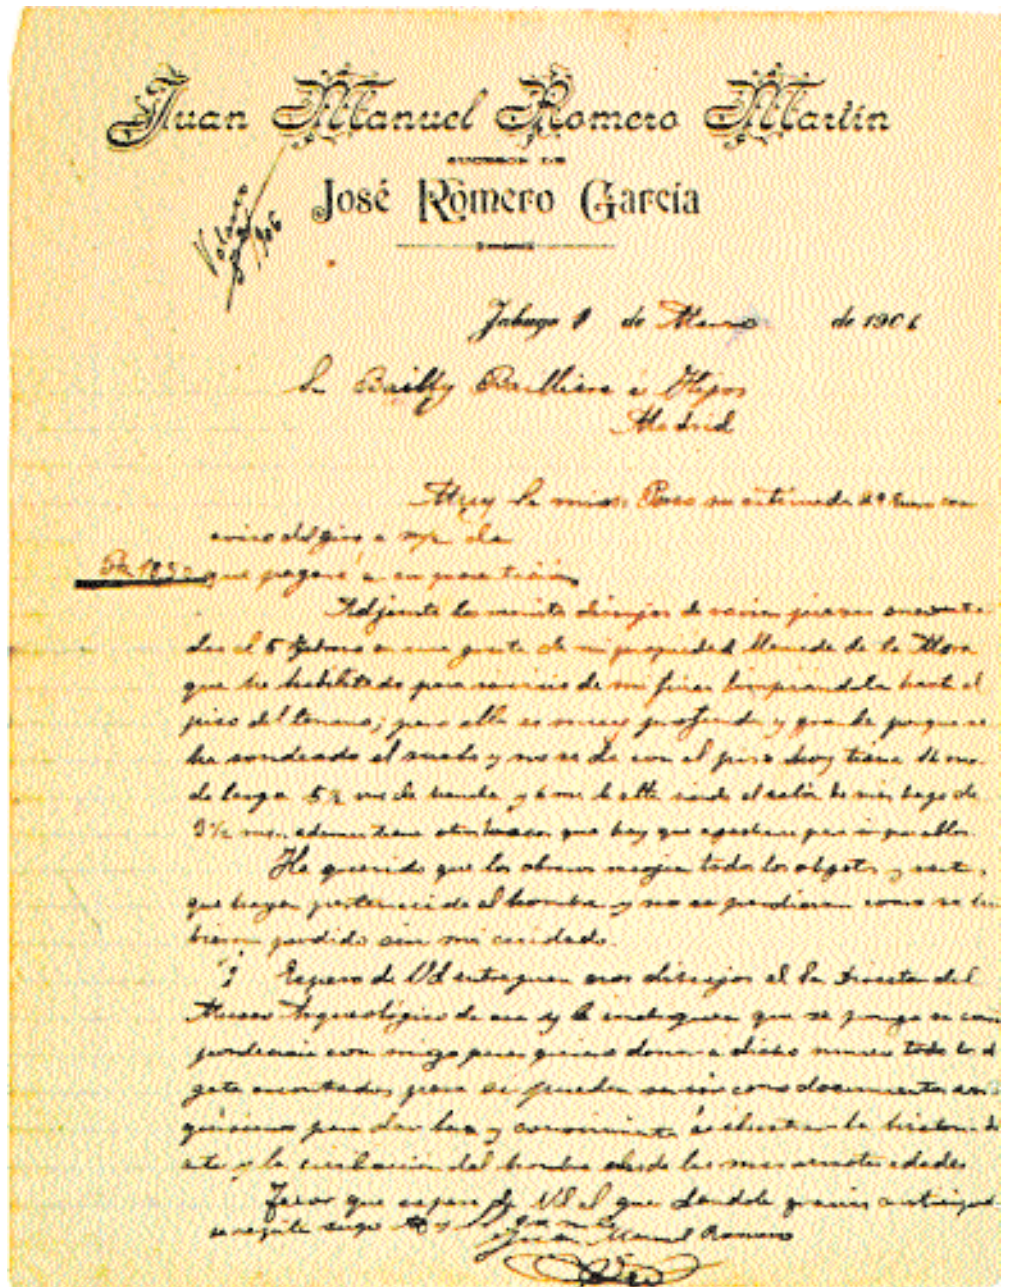 Juan Manuel Romero Martín
SUCESOR DE
José Romero García
Jabugo 1 de Marzo de 1906
Sr Bailly Bailliere é Hijos
Madrid
Muy Sr mios: Poseo su estimada
aviso del giro a m/c de
que pagaré á su presentación
Adjunto les remito dibujos de varias piezas encontra
das el 5 Febrero en una gruta de mi propiedad llamada de la Mora
que he habilitado para servicio de mi finca limpiandola hasta el
piso del terreno; pero ella es muy profunda y grande porque se
ha sondeado el suelo y no se da con el piso hoy tiene
de largo 5½ de ancho y de alto siendo el salón
3½ que hay que
He querido que los obreros recojan todos los objetos y restos
que hayan pertenecido al hombre y no se perdieran como se hu
bieran perdido sin mi cuidado.
Espero de Vd entreguen esos dibujos al Sr Director del
Museo Arqueológico de esa y le indiquen que se ponga en corres
pondencia con migo pues quiero donar a dicho museo todo lo
encontrado, para si pueden servir como documentos
para dar luz y conocimiento é ilustrar la historia del
arte y la civilacion del hombre desde las mas remotas edades
Favor que espera de Vd el que dandole gracias anticipad
se repite suyo
Juan Manuel Romero